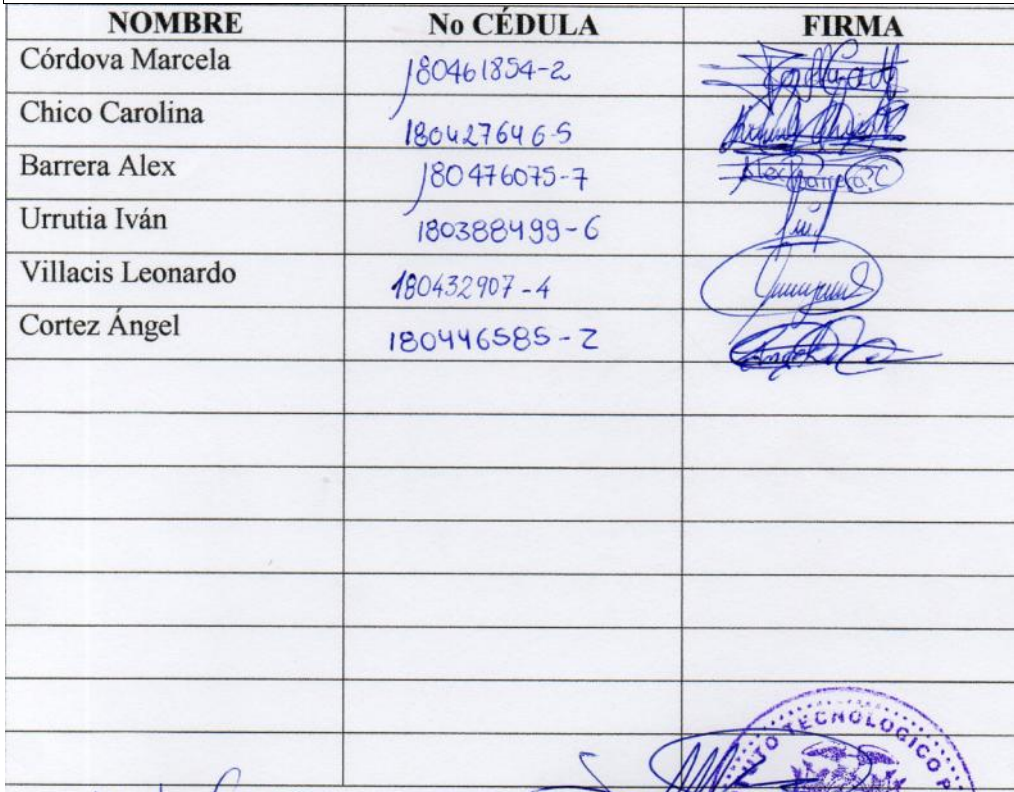 NOMBRE No CÉDULA FIRMA
Córdova Marcela 180461854-2
Chico Carolina 180427646-5
Barrera Alex 180476075-7 Alex Barrera C
Urrutia Iván 180388499-6
Villacis Leonardo 180432907-4
Cortez Ángel 180446585-2
UTO TECNOLOGICO P